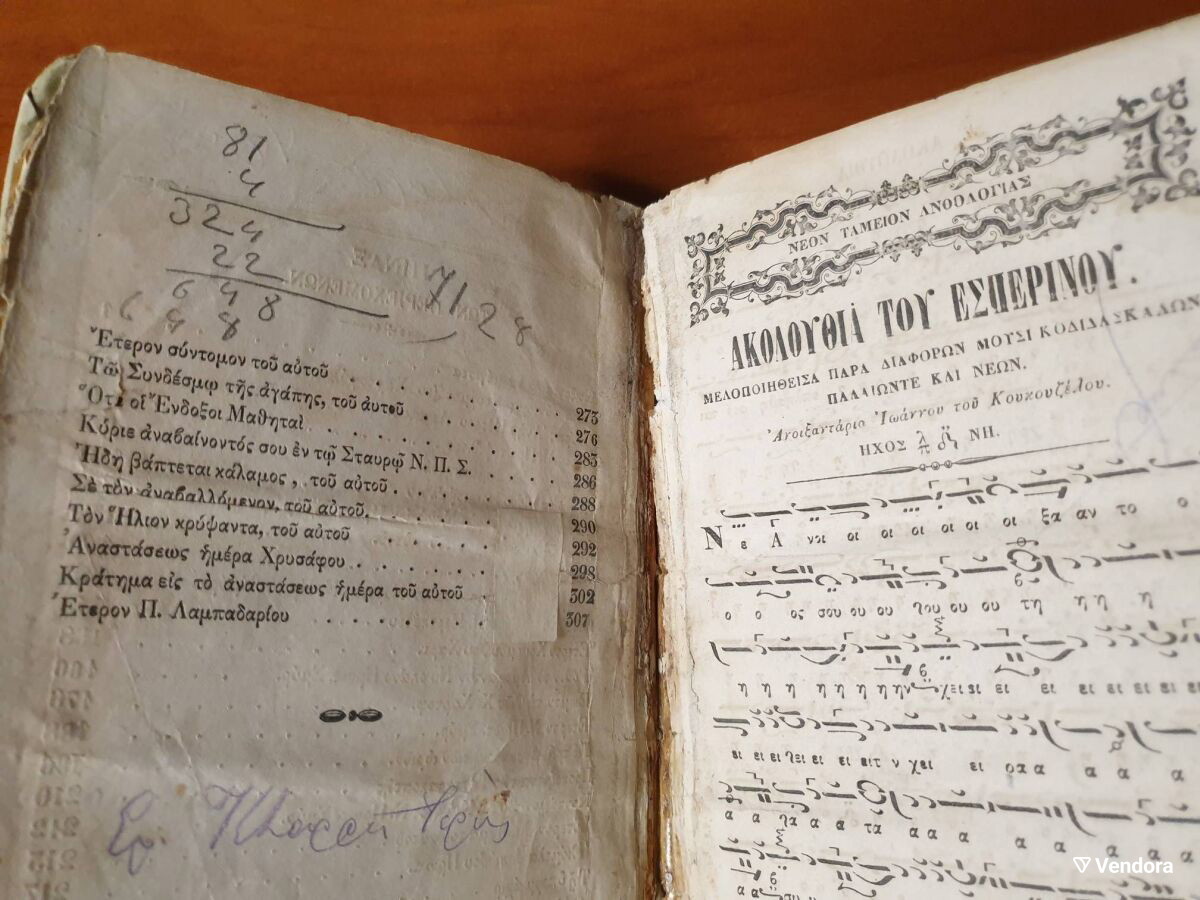 81
4
324
22
648
7128
6 4 8
Ἕτερον σύντομον τοῦ αὐτοῦ . . . . . . . 273
Τῷ Συνδέσμῳ τῆς ἀγάπης, τοῦ αὐτοῦ . . . . . . 276
Ὅτε οἱ Ἔνδοξοι Μαθηταὶ . . . . . . . 283
Κύριε ἀναβαίνοντός σου ἐν τῷ Σταυρῷ Ν. Π. Σ. . . . 286
Ἤδη βάπτεται κάλαμος, τοῦ αὐτοῦ . . . . . 288
Σὲ τὸν ἀναβαλλόμενον, τοῦ αὐτοῦ. . . . . . 290
Τὸν Ἥλιον κρύψαντα, τοῦ αὐτοῦ . . . . . 292
Ἀναστάσεως ἡμέρα Χρυσάφου . . . . . . 298
Κράτημα εἰς τὸ ἀναστάσεως ἡμέρα τοῦ αὐτοῦ . . 302
Ἕτερον Π. Λαμπαδαρίου . . . . . . 307
ΝΕΟΝ ΤΑΜΕΙΟΝ ΑΝΘΟΛΟΓΙΑΣ
ΑΚΟΛΟΥΘΙΑ ΤΟΥ ΕΣΠΕΡΙΝΟΥ.
ΜΕΛΟΠΟΙΗΘΕΙΣΑ ΠΑΡΑ ΔΙΑΦΟΡΩΝ ΜΟΥΣΙΚΟΔΙΔΑΣΚΑΛΩΝ
ΠΑΛΑΙΩΝΤΕ ΚΑΙ ΝΕΩΝ.
Ἀνοιξαντάρια Ἰωάννου τοῦ Κουκουζέλου.
ΗΧΟΣ ΝΗ.
Ν ε Α νοι οι οι οι οι οι ξα αν το ο
ο ο ος σου ου ου ου ου ου τη η η η
η η η η η η ην χει ει ει ει ει ει ει ει ει ει
ει ει ει ει ει ει ειτ ν χει ει ρα α α α α α
α α α α α τα α α α α α α α α
α α
Vendora